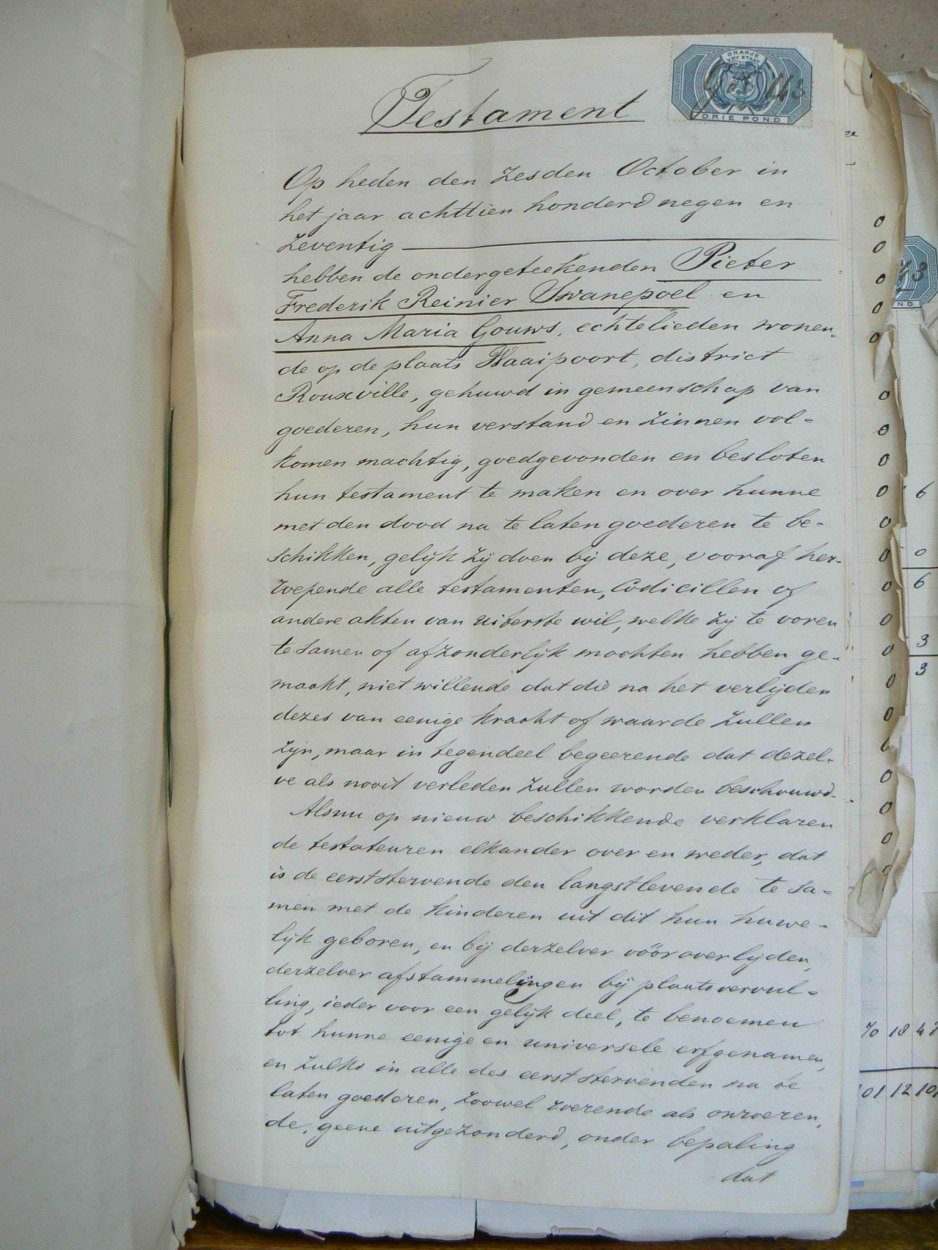 Testament
ORANJE
VRY STAAT
DRIE POND
Op heden den zesden October in
het jaar achttien honderd negen en
zeventig
hebben de ondergeteekenden Pieter
Frederik Reinier Swanepoel en
Anna Maria Gouws, echtelieden wonen-
de op de plaats Waaipoort, district
Rouxville, gehuwd in gemeenschap van
goederen, hun verstand en zinnen vol-
komen machtig, goedgevonden en besloten
hun testament te maken en over hunne
met den dood na te laten goederen te be-
schikken, gelijk zij doen bij deze, vooraf her-
roepende alle testamenten, Codicillen of
andere akten van uiterste wil, welke zij te voren
te samen of afzonderlijk mochten hebben ge-
maakt, niet willende dat die na het verlijden
dezes van eenige kracht of waarde zullen
zijn, maar in tegendeel begeerende dat dezel-
ve als nooit verleden zullen worden beschouwd.
Alsnu op nieuw beschikkende verklaren
de testateuren elkander over en weder, dat
is de eerststervende den langstlevende te sa-
men met de kinderen uit dit hun huwe-
lijk geboren, en bij derzelver vóóroverlijden,
derzelver afstammelingen bij plaatsvervul-
ling, ieder voor een gelijk deel, te benoemen
tot hunne eenige en universele erfgenamen,
en zulks in alle des eerststervenden na te
laten goederen, zoowel roerende als onroeren,
de, geene uitgezonderd, onder bepaling
dat
0
0
0
0
0
0
0
0 6
0
0 0
0 6
0
0 3
0 3
0
0
0
0
0